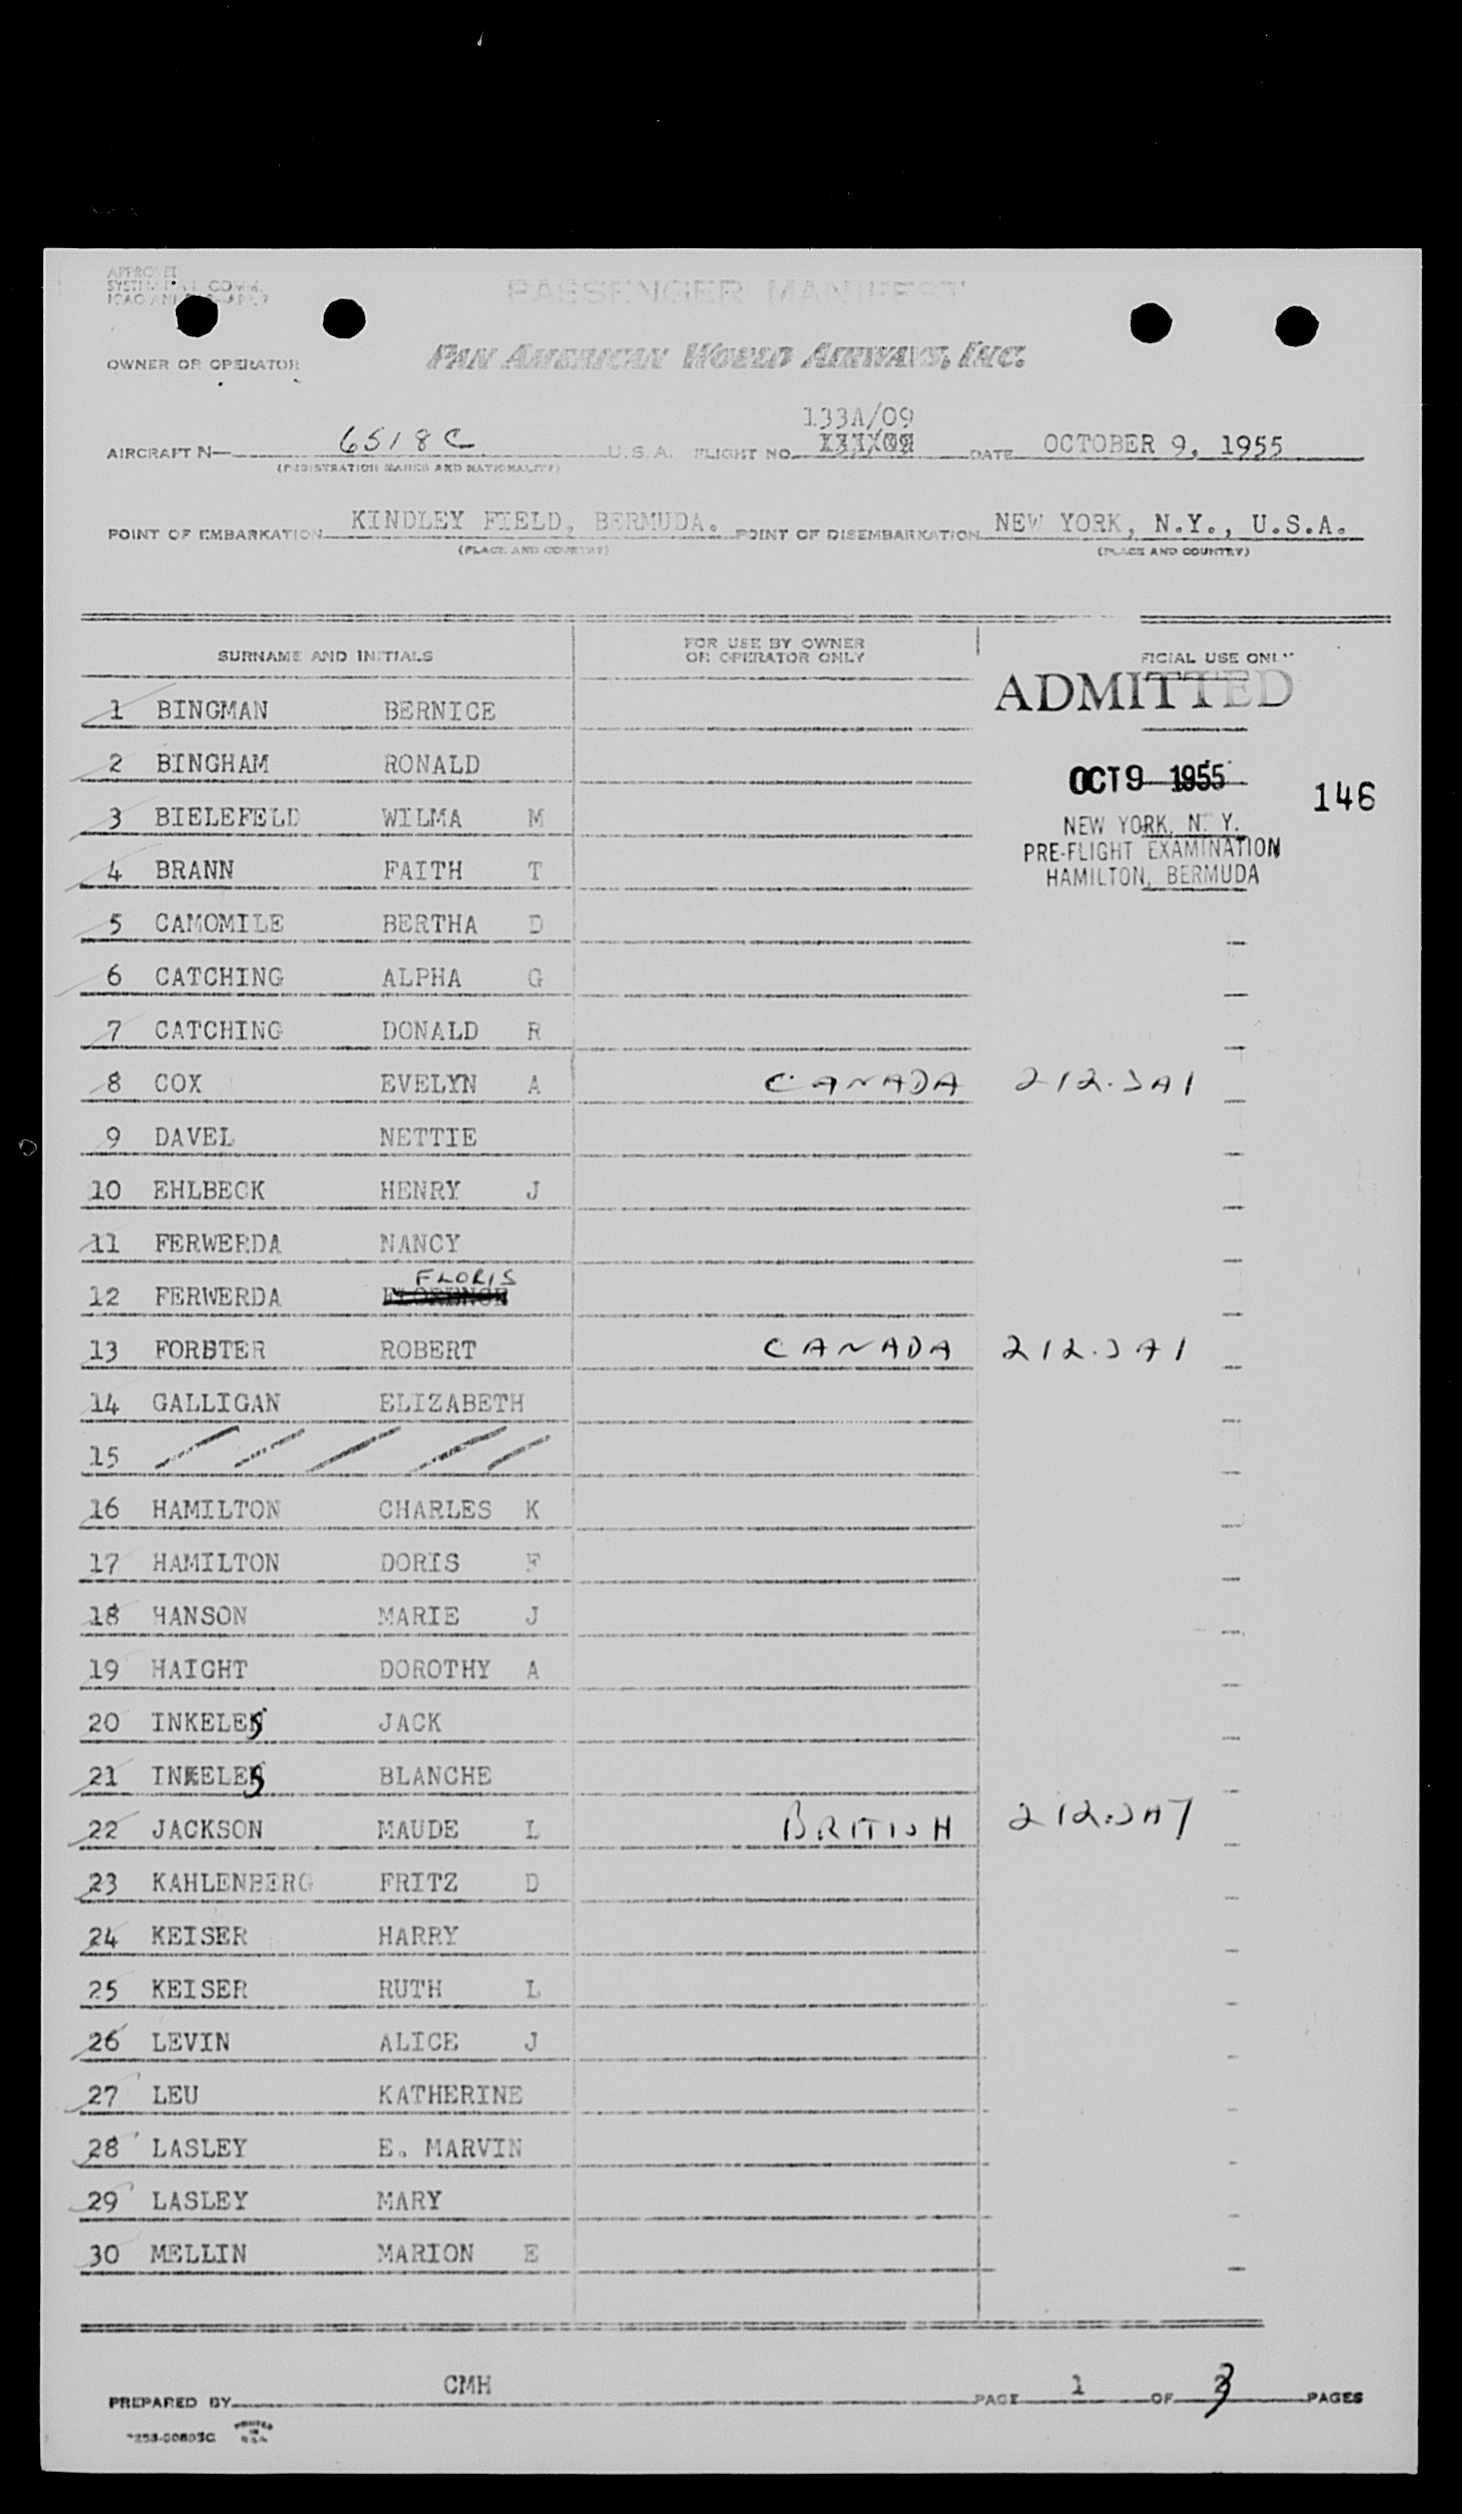 PASSENGER MANIFEST
OWNER OR OPERATOR PAN AMERICAN WORLD AIRWAYS, INC.
133A/09
AIRCRAFT N— 6518C U.S.A. FLIGHT NO. DATE OCTOBER 9, 1955
(REGISTRATION MARKS AND NATIONALITY)
POINT OF EMBARKATION KINDLEY FIELD, BERMUDA. POINT OF DISEMBARKATION NEW YORK, N.Y., U.S.A.
(PLACE AND COUNTRY) (PLACE AND COUNTRY)
SURNAME AND INITIALS FOR USE BY OWNER OR OPERATOR ONLY FICIAL USE ONLY
ADMITTED
1 BINGMAN BERNICE
OCT 9 1955
2 BINGHAM RONALD
146
NEW YORK, N. Y.
3 BIELEFELD WILMA M
PRE-FLIGHT EXAMINATION
HAMILTON, BERMUDA
4 BRANN FAITH T
5 CAMOMILE BERTHA D
6 CATCHING ALPHA G
7 CATCHING DONALD R
8 COX EVELYN A CANADA 212.JA1
9 DAVEL NETTIE
10 EHLBECK HENRY J
11 FERWERDA NANCY
12 FERWERDA FLORIS
13 FORSTER ROBERT CANADA 212.JA1
14 GALLIGAN ELIZABETH
15
16 HAMILTON CHARLES K
17 HAMILTON DORIS F
18 HANSON MARIE J
19 HAIGHT DOROTHY A
20 INKELES JACK
21 INKELES BLANCHE
22 JACKSON MAUDE L BRITISH 212.JA7
23 KAHLENBERG FRITZ D
24 KEISER HARRY
25 KEISER RUTH L
26 LEVIN ALICE J
27 LEU KATHERINE
28 LASLEY E. MARVIN
29 LASLEY MARY
30 MELLIN MARION E
PREPARED BY CMH PAGE 1 OF 3 PAGES
PRINTED IN U.S.A.